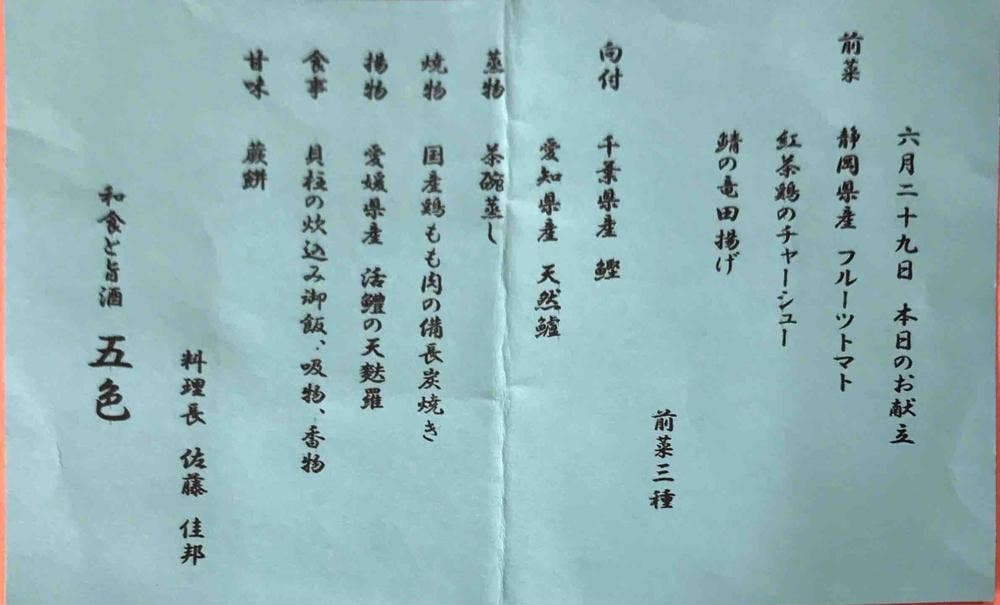 六月二十九日 本日のお献立
前菜 静岡県産 フルーツトマト
紅茶鶏のチャーシュー
鯖の竜田揚げ
前菜三種
向付 千葉県産 鰹
愛知県産 天然鱸
蒸物 茶碗蒸し
焼物 国産鶏もも肉の備長炭焼き
揚物 愛媛県産 活鱧の天麩羅
食事 貝柱の炊込み御飯、吸物、香物
甘味 蕨餅
料理長 佐藤 佳邦
和食と旨酒 五色